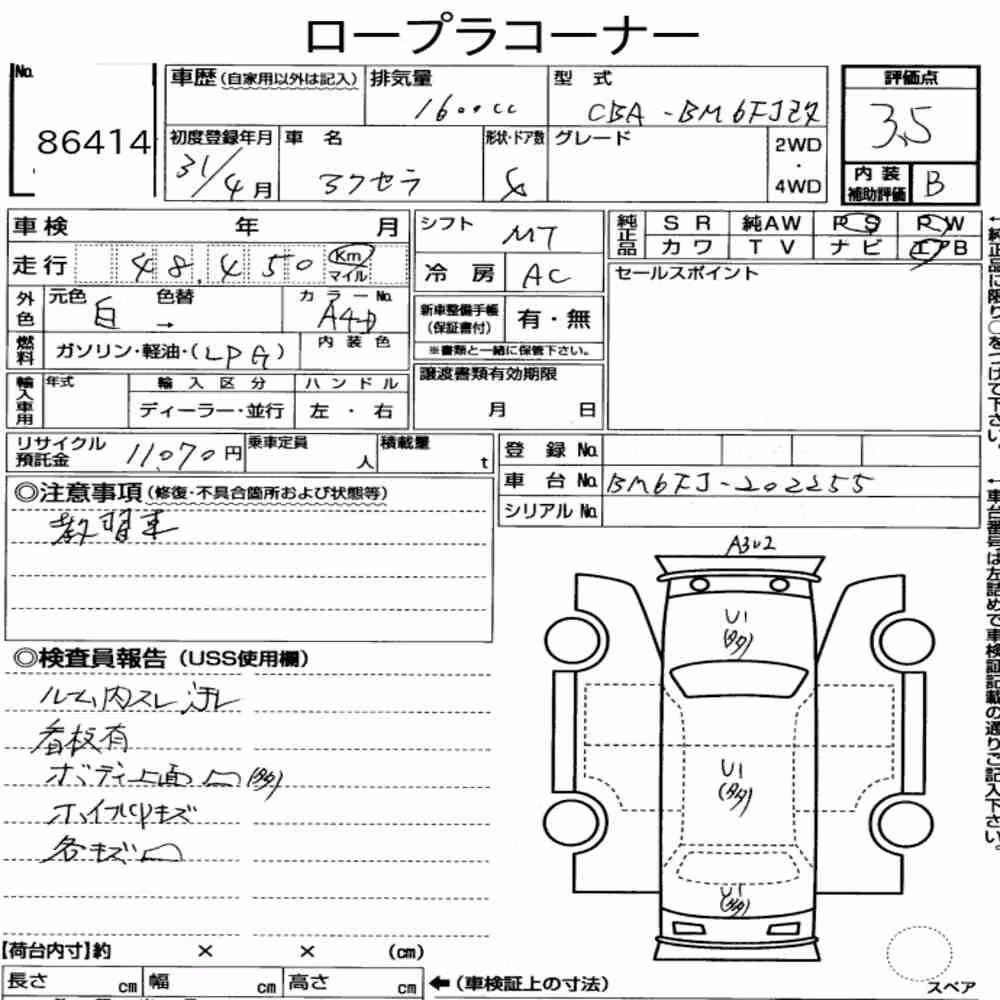 ロープラコーナー
No. 86414
車歴(自家用以外は記入)
排気量 1600cc
型 式 CBA-BM6FJ改
評価点 3.5
初度登録年月 31/4月
車 名 アクセラ
形状・ドア数 4
グレード
2WD・4WD
内装補助評価 B
車検 年 月
シフト MT
純正品 SR 純AW PS PW
カワ TV ナビ エアB
走行 48,450 Km マイル
冷 房 AC
セールスポイント
外色 元色 白 色替 → カラーNo. A4D
新車整備手帳(保証書付) 有・無
※書類と一緒に保管下さい。
燃料 ガソリン・軽油・(LPG) 内装色
輸入車用 年式 輸入区分 ハンドル
ディーラー・並行 左・右
譲渡書類有効期限
月 日
リサイクル預託金 11,070円
乗車定員 人
積載量 t
登 録 No.
車 台 No. BM6FJ-202255
シリアル No.
◎注意事項(修復・不具合箇所および状態等)
教習車
A3U2
U1
(多タ)
◎検査員報告(USS使用欄)
ルーム内スレ汚レ
看板有
ボディ上面凹(多タ)
U1
(多タ)
ホイルリキズ
各キズ凹
U1
(多タ)
【荷台内寸】約 × × (cm)
長さ cm 幅 cm 高さ cm
←(車検証上の寸法)
スペア
←純正品に限り○をつけて下さい。
←車台番号は左詰めで車検証記載の通りご記入下さい。